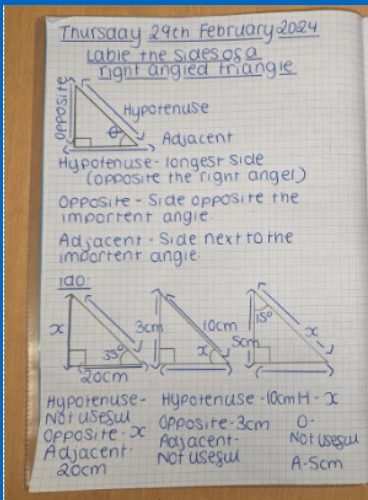 Thursday 29th February 2024
Lable the sides of a
right angled triangle
Opposite
Hypotenuse
θ
Adjacent
Hypotenuse - longest side
(opposite the right angel)
Opposite - Side opposite the
importent angle.
Adjacent - Side next to the
importent angle.
x
35°
20cm
3cm
10cm
x
15°
5cm
x
Hypotenuse -
Not useful
Opposite - x
Adjacent -
20cm
Hypotenuse - 10cm
Opposite - 3cm
Adjacent -
Not useful
H - x
O -
Not useful
A - 5cm